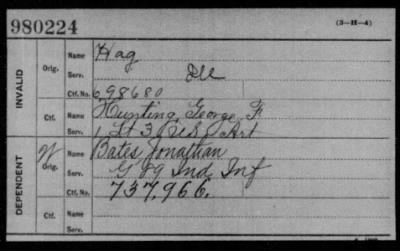 980224
(3-H-4)
INVALID
Orig.
Name Hag
Serv. Ill
Ctf. No. 698680
Ctf.
Name Hunting, George F.
Serv. 1 Lt 3 U S Art
DEPENDENT
W
Orig.
Name Bates Jonathan
Serv. G 89 Ind. Inf
Ctf. No. 737,966.
Ctf.
Name
Serv.